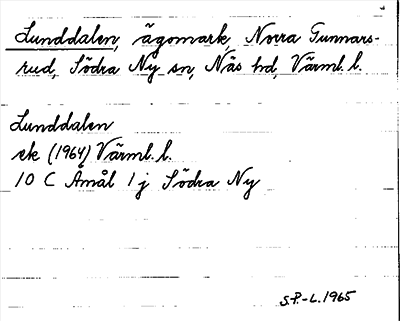 Lunddalen, ägomark, Norra Gunnars-
rud, Södra Ny sn, Näs hd, Värml. l.
Lunddalen
ek (1964) Värml. l.
10 C Åmål 1j Södra Ny
S.P.-L. 1965